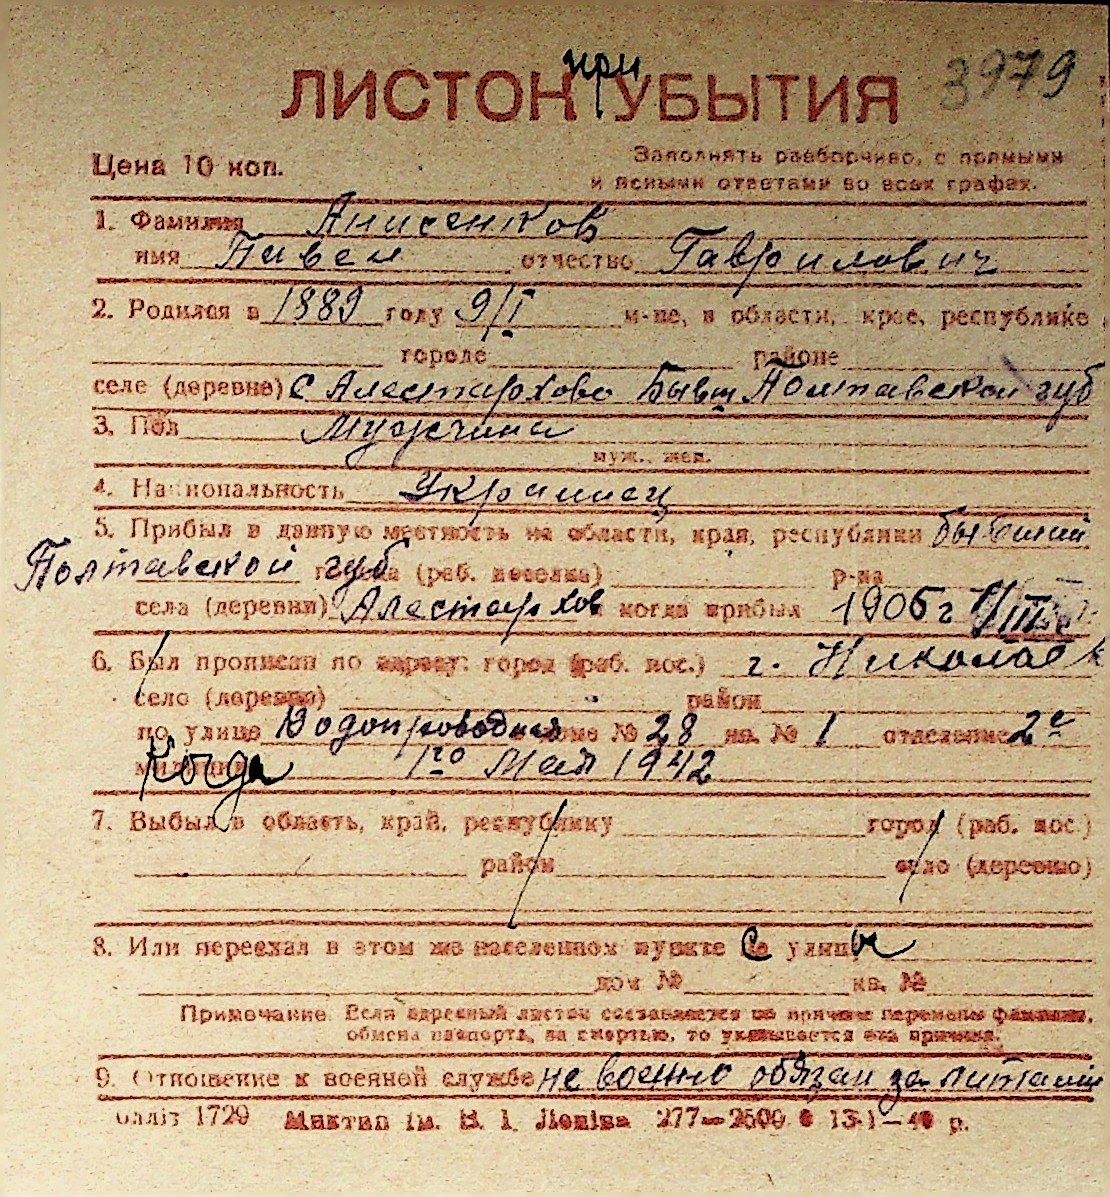 3979
при
ЛИСТОК УБЫТИЯ
Цена 10 коп.
Заполнять разборчиво, с прямыми
и ясными ответами во всех графах.
1. Фамилия Анисенков
имя Павел отчество Гаврилович
2. Родился в 1889 году 9/I м-це, в области, крае, республике
городе районе
селе (деревне) с Алестархово Бывш Полтавской губ
3. Пол Мужчина
муж., жен.
4. Национальность Украинец
5. Прибыл в данную местность из области, края, республики бывший
Полтавской губ города (раб. поселка) р-на
села (деревни) Алестархов когда прибыл 1905 г
6. Был прописан по адресу: город (раб. пос.) г. Николаев
село (деревню) район
по улице Водопроводная доме № 28 кв. № 1 отделение 2е
милиции Когда 1го Мая 1942
7. Выбыл в область, край, республику город (раб. пос.)
район село (деревню)
8. Или переехал в этом же населенном пункте с улицы
дом № кв. №
Примечание. Если адресный листок составляется по причине перемены фамилии,
обмена паспорта, за смертью, то указывается эта причина.
9. Отношение к военной службе не военно обязан за литами
1729 Миктип ім. В. І. Леніна 277—2500 13-1—40 р.